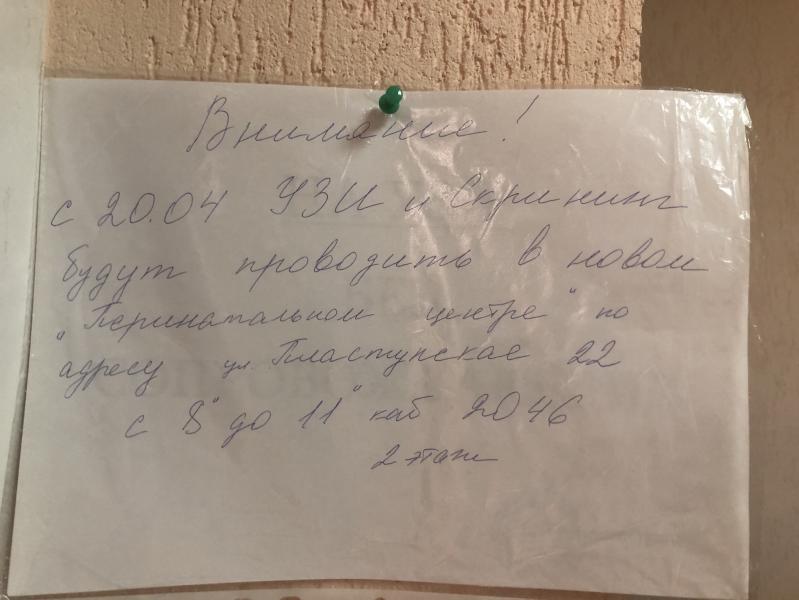 Внимание!
с 20.04 УЗИ и Скрининг
будут проводить в новом
"Перинатальном центре" по
адресу ул. Пластунская 22
с 8°° до 11°° каб 2046
2 этаж